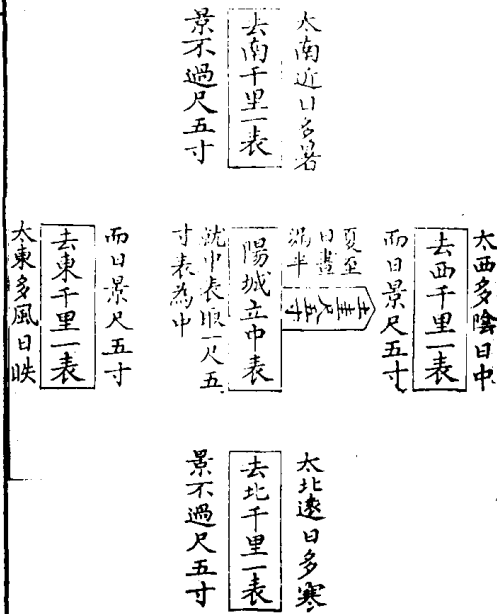 太南近日多暑
去南千里一表
景不過尺五寸
太西多陰日中
去西千里一表
而日景尺五寸
夏至
日晝
漏半
土圭尺五寸
陽城立中表
就中表眂一尺五
寸表為中
而日景尺五寸
去東千里一表
太東多風日昳
太北遠日多寒
去北千里一表
景不過尺五寸